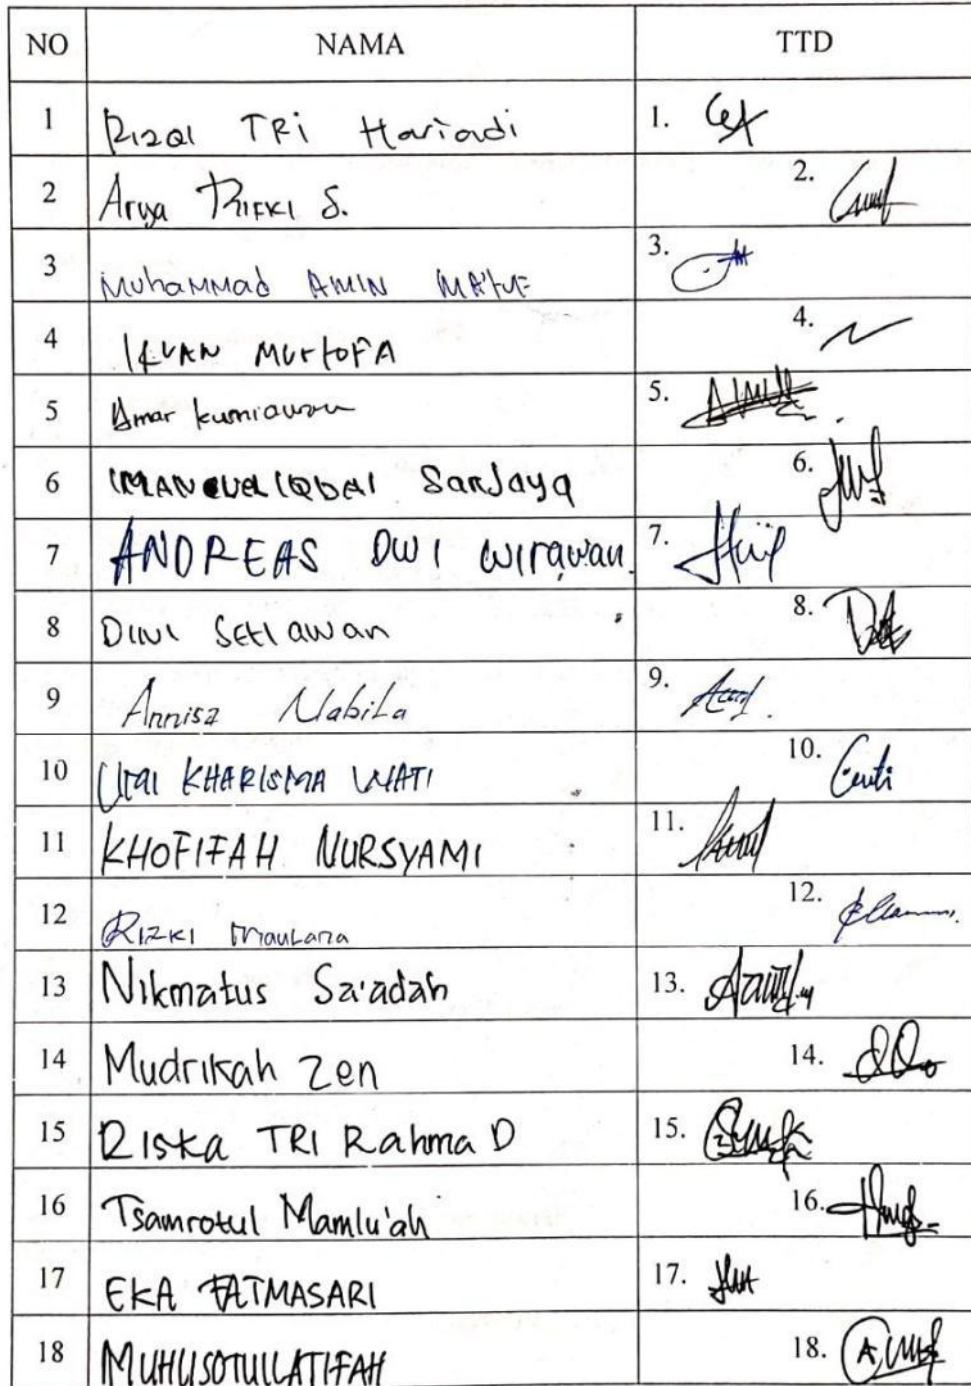 NO NAMA TTD
1 Rizqi TRi Hariadi 1.
2 Arya Rifki S. 2.
3 Muhammad AMIN MA'ruf 3.
4 MUSTOFA 4.
5 Amar kurniawan 5.
6 IMANUEL IQBAL SanJaya 6.
7 ANDREAS DWI wirawan. 7.
8 DINI Setiawan 8.
9 Annisa Nabila 9.
10 KHARISMA WATI 10.
11 KHOFIFAH NURSYAMI 11.
12 RIZKI maulana 12.
13 Nikmatus Sa'adah 13.
14 Mudrikah Zen 14.
15 Riska TRI Rahma D 15.
16 Tsamrotul Mamlu'ah 16.
17 EKA FATMASARI 17.
18 18.